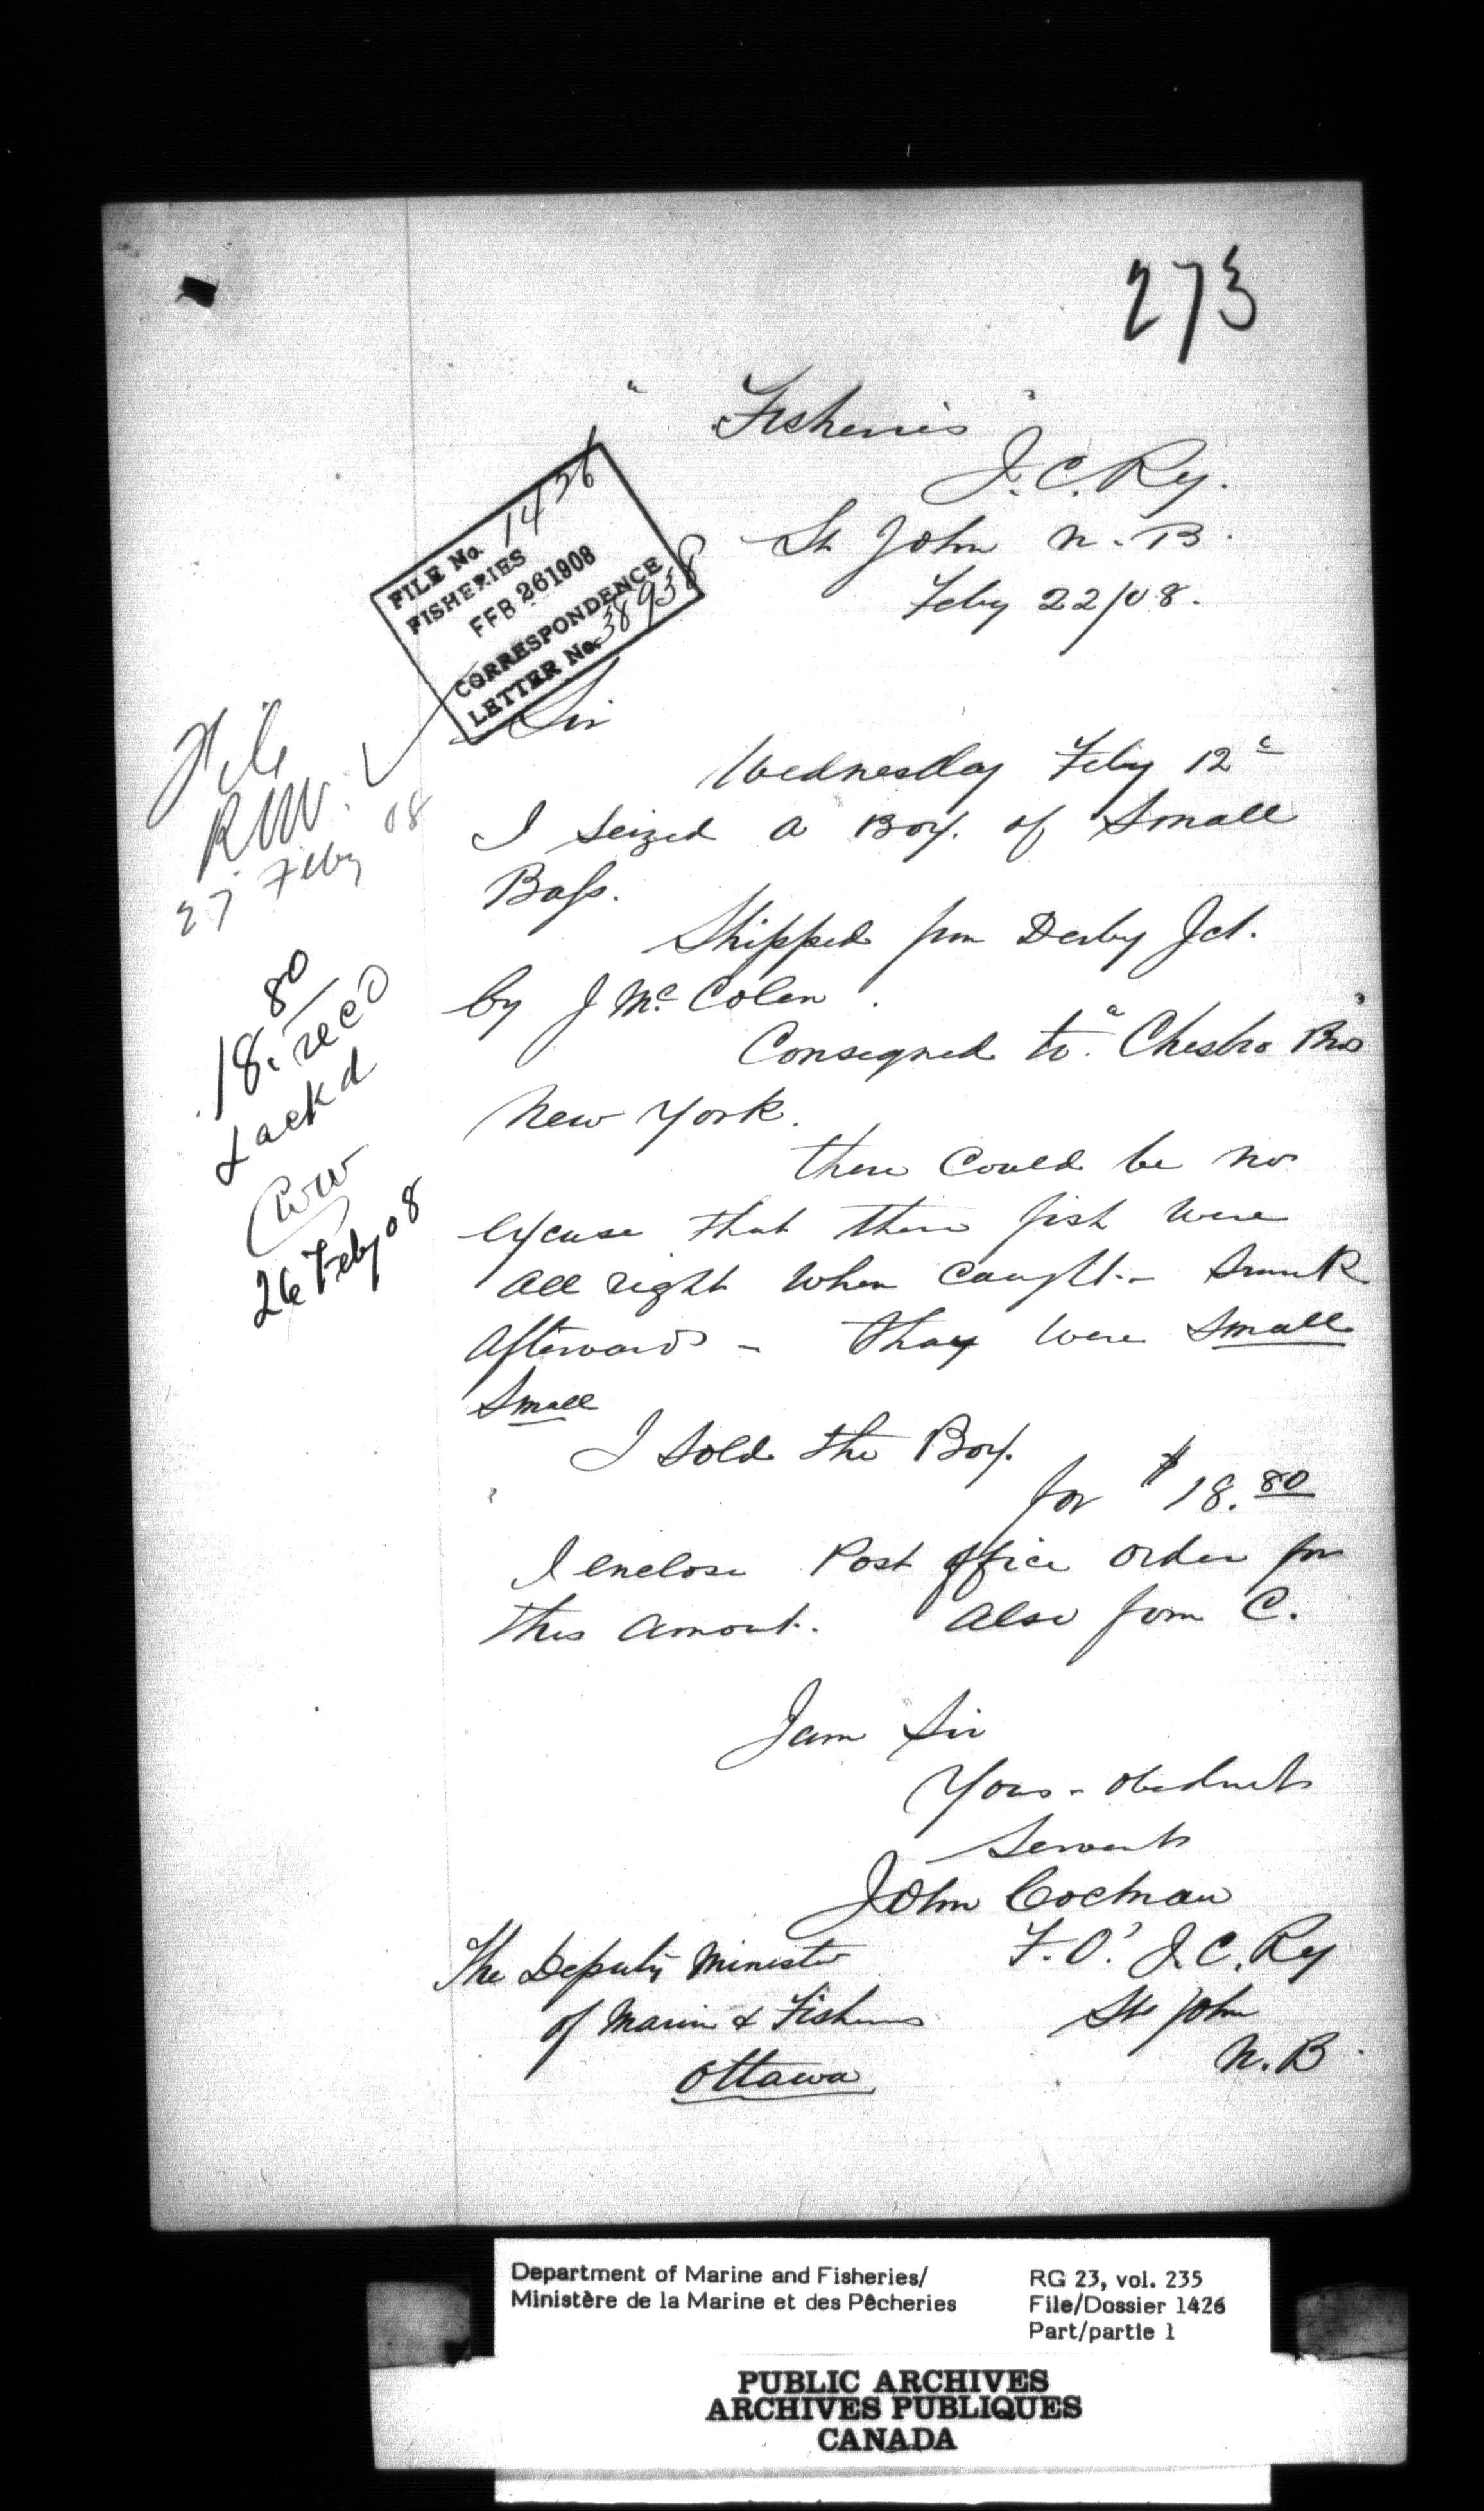 273
"Fisheries"
I.C.Ry.
St John N.B.
Feby 22/08.
FILE No. 1426
FISHERIES
FEB 26 1908
CORRESPONDENCE
LETTER No. 38938
Sir
Wednesday Feby 12
I seized a Box of Small
Bass.
Shipped from Derby Jct.
by J Mc Colen.
Consigned to "Chesbro Bros"
New York.
There could be no
excuse that these fish were
all right when caught - Srunk
afterwards - They were Small
Small
I sold the Box.
for $18.80
I enclose Post office order for
this amout. Also form C.
I am Sir
Yours - obednet
Servent
John Cochran
F.O. I.C.Ry
St John
N.B.
The Deputy Minister
of Marine & Fisheries
Ottawa
File
RW
27 Feby 08
18.80
recd
& ackd
26 Feby 08
Department of Marine and Fisheries/
Ministère de la Marine et des Pêcheries
RG 23, vol. 235
File/Dossier 1426
Part/partie 1
PUBLIC ARCHIVES
ARCHIVES PUBLIQUES
CANADA